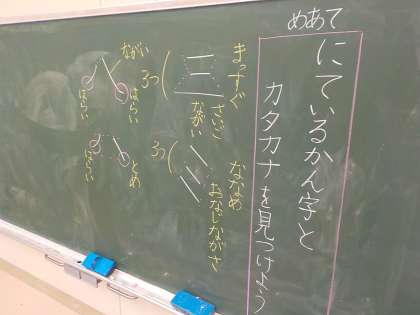 めあて
にているかん字と
カタカナを見つけよう
まっすぐ
三
さいご
ながい
3つ
ななめ
ミ
おなじながさ
3つ
ながい
八
はらい
はらい
ハ
とめ
はらい